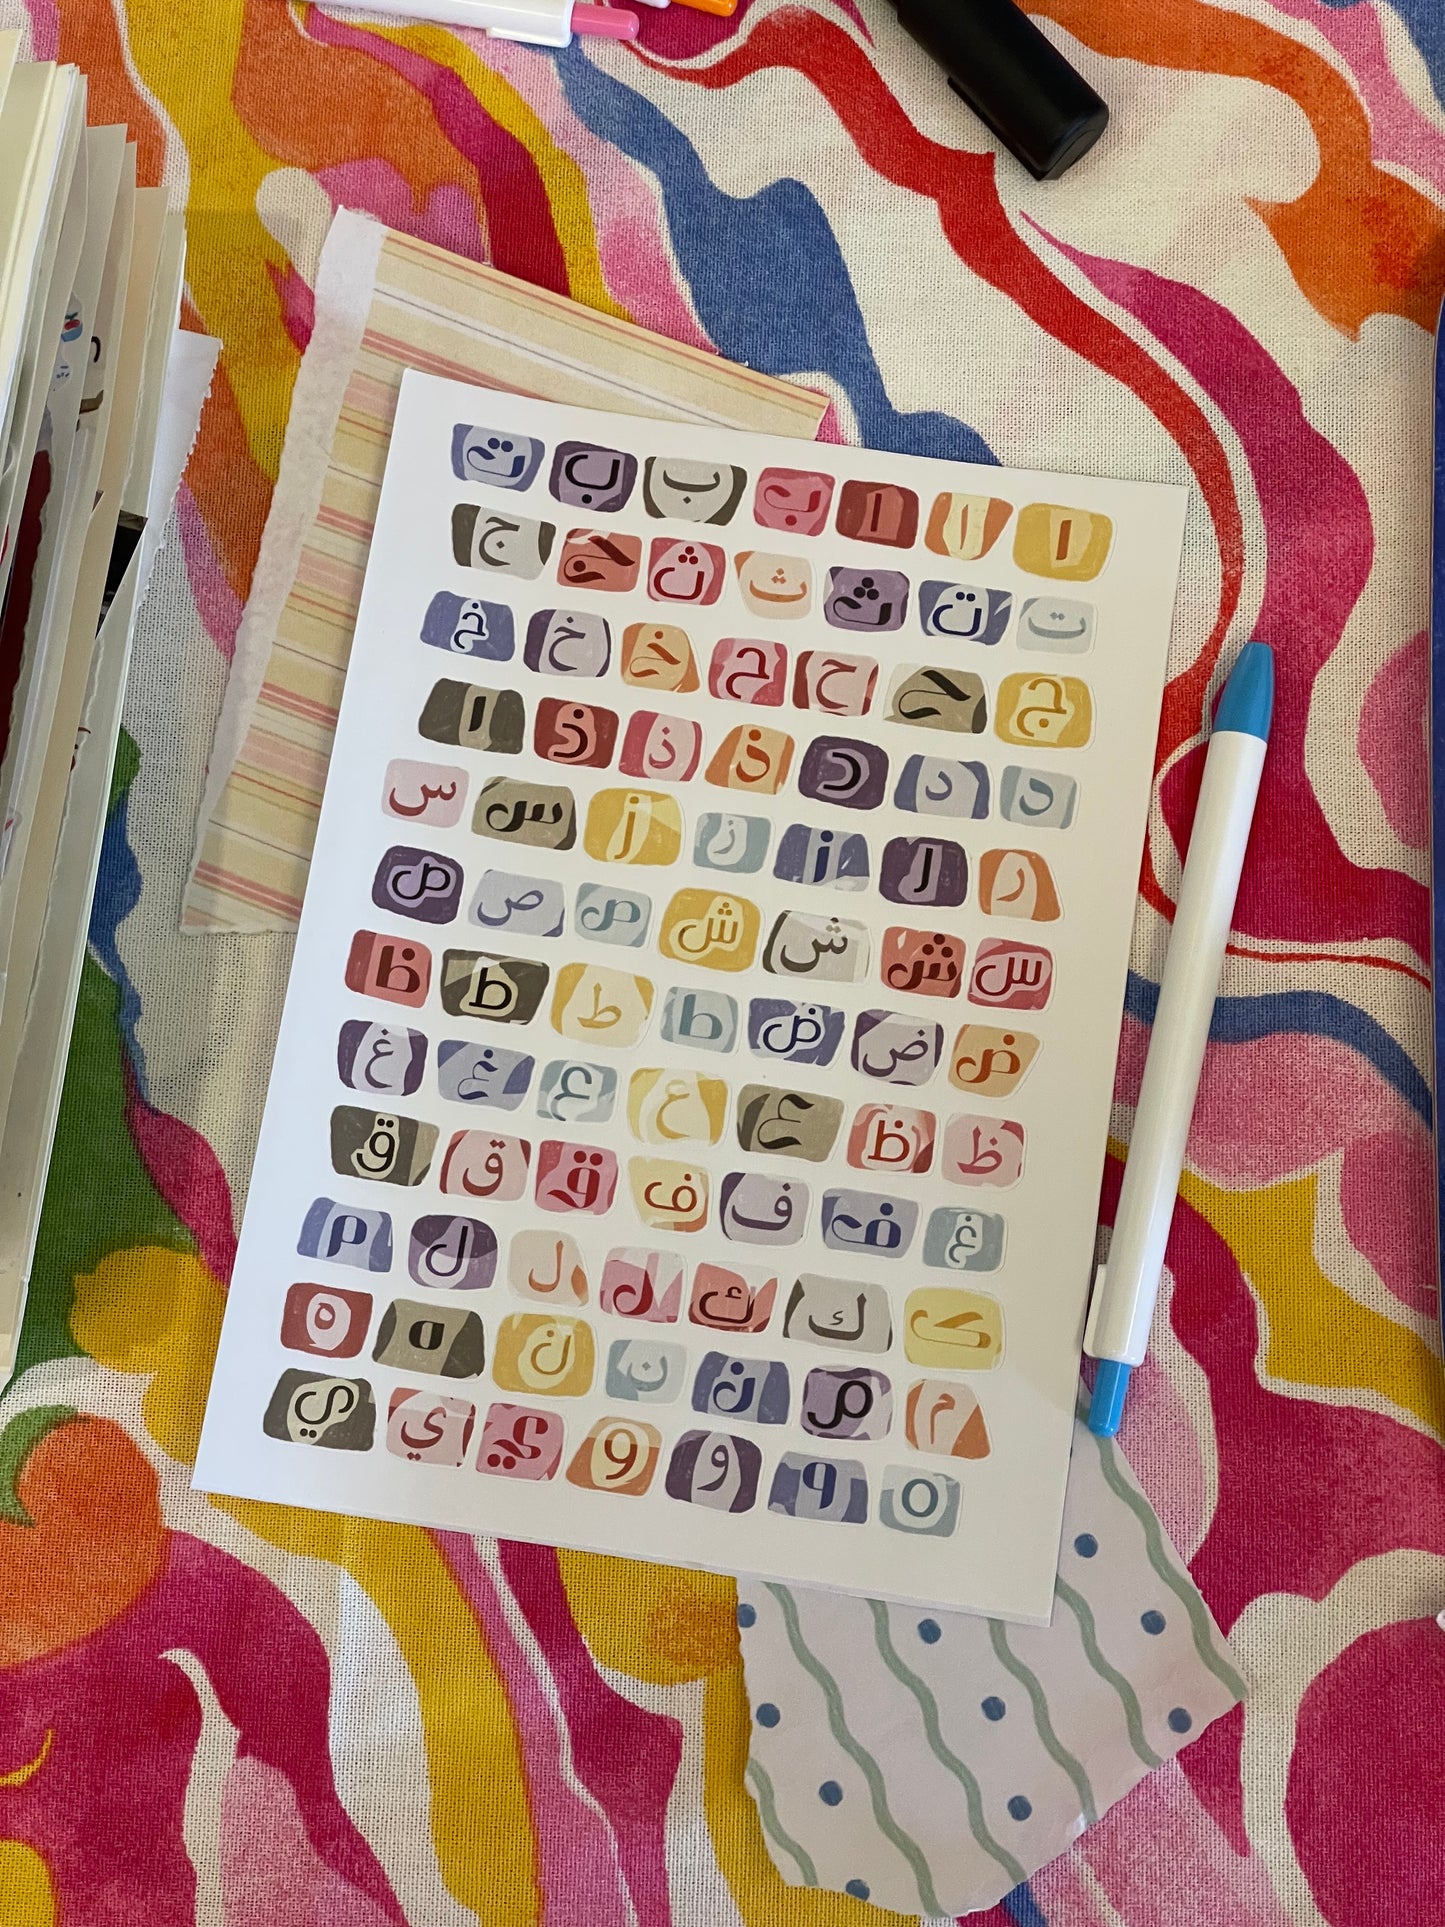 ا ا ا ب ب ب ت
ت ت ث ث ث ج ج
ج ح ح ح خ خ خ
د د د ذ ذ ذ ر
ر ر ز ز ز س س
س ش ش ش ص ص ص
ض ض ض ط ط ط ظ
ظ ظ ع ع ع غ غ
غ ف ف ف ق ق ق
ك ك ك ل ل ل م
م م ن ن ن ه ه
ه و و و ي ي ي